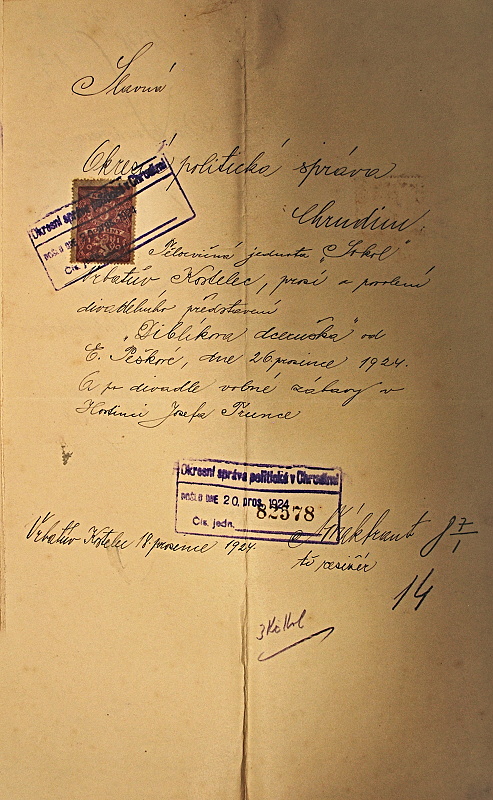 Slavná
Okresní politická správa
Chrudim
Okresní správa politická v Chrudimi
DOŠLO DNE
Čís. jedn.
Tělocvičná jednota „Sokol"
Vrbatův Kostelec, prosí o povolení
divadelního představení
„Diblíkova dceruška" od
E. Peškové, dne 26 prosince 1924.
A po divadle volné zábavy v
Hostinci Josefa Trunce
Okresní správa politická v Chrudimi
DOŠLO DNE 20. pros. 1924
Čís. jedn. 82578
Vrbatův Kostelec 18 prosince 1924.
14